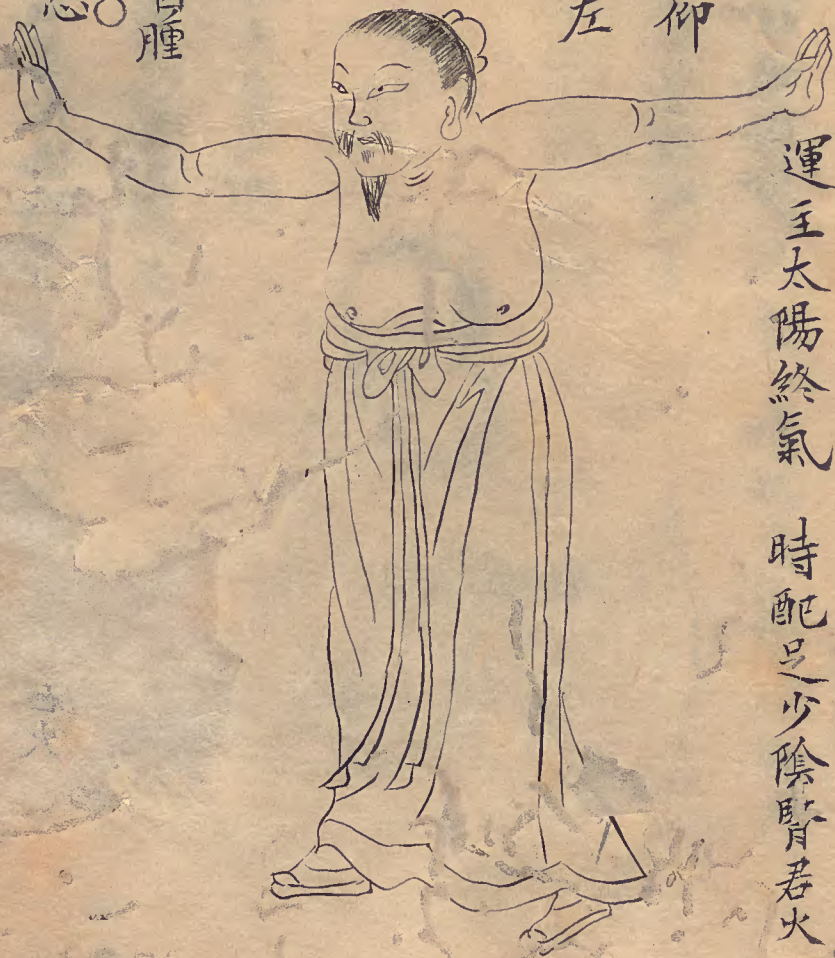 運主太陽終氣　時配足少陰腎君火
仰
左
腫